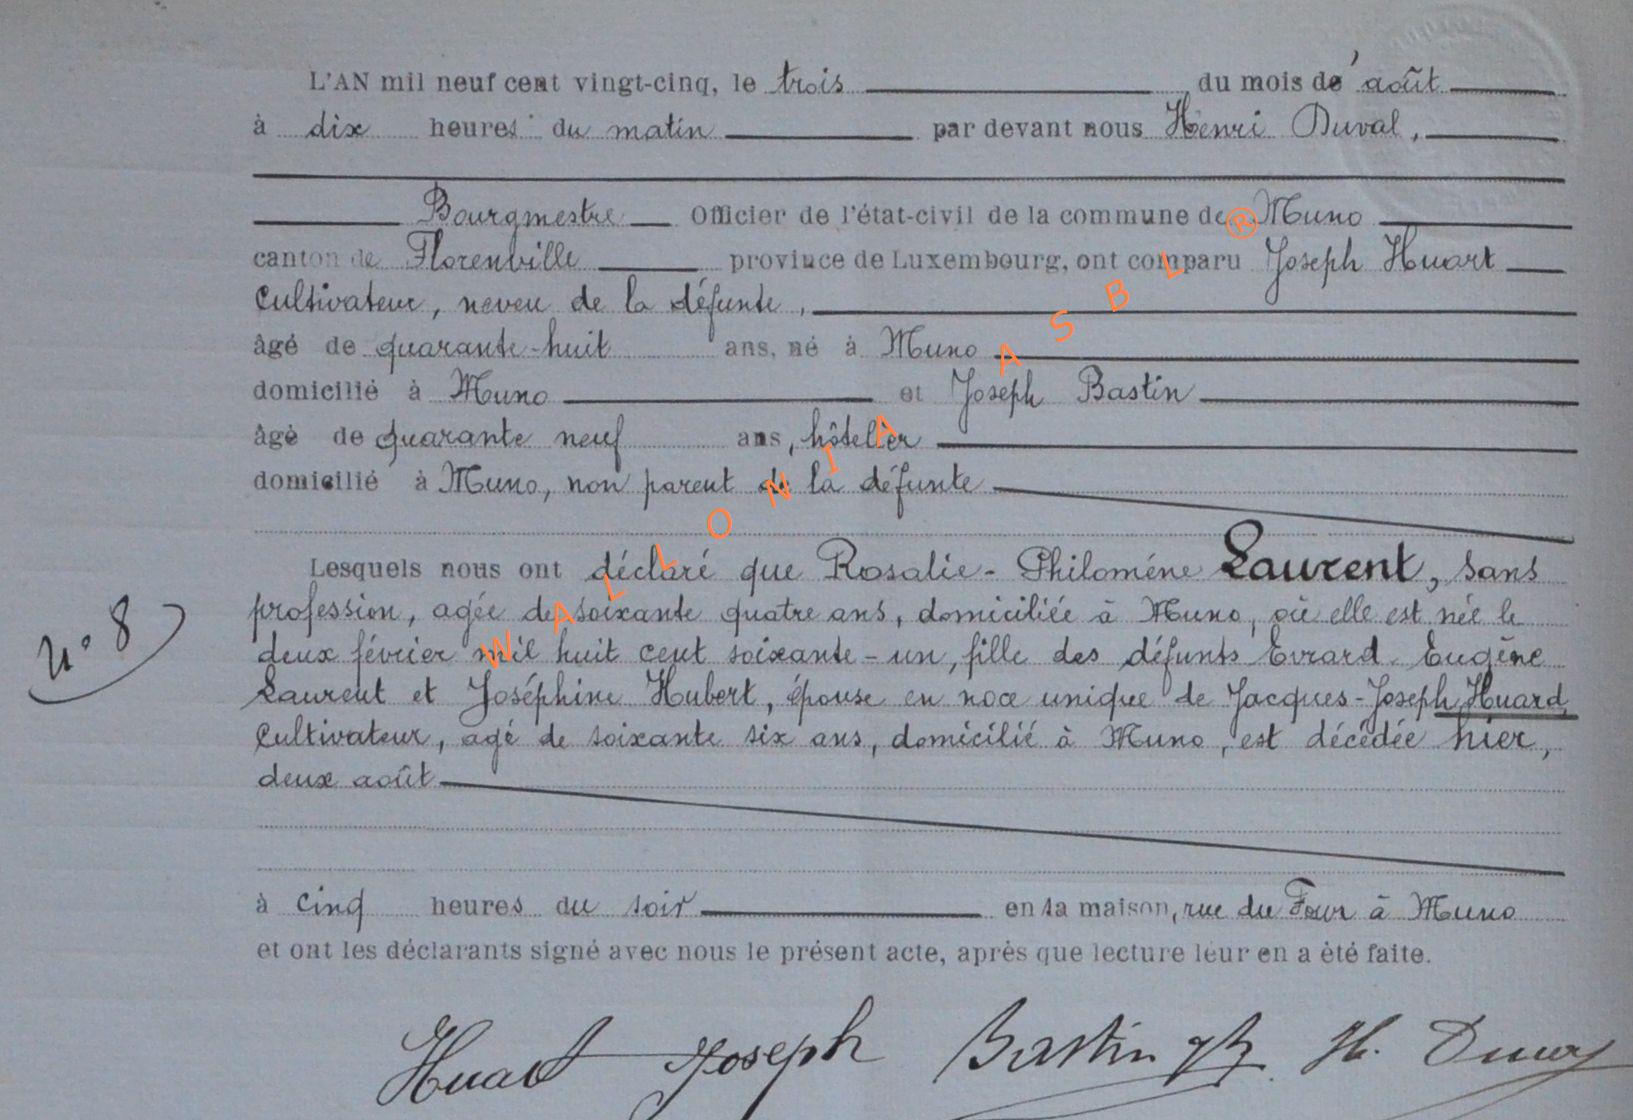 L'AN mil neuf cent vingt-cinq, le trois du mois de août
à dix heures du matin par devant nous Henri Duval,
Bourgmestre Officier de l'état-civil de la commune de Muno
canton de Florenville province de Luxembourg, ont comparu Joseph Huart
Cultivateur, neveu de la défunte,
âgé de quarante-huit ans, né à Muno
domicilié à Muno et Joseph Bastin
âgé de quarante neuf ans, hôtelier
domicilié à Muno, non parent de la défunte
Lesquels nous ont déclaré que Rosalie-Philoméne Laurent, sans
profession, agée de soixante quatre ans, domiciliée à Muno, où elle est née le
deux février mil huit cent soixante-un, fille des défunts Evrard-Eugène
Laurent et Joséphine Hubert, épouse en noce unique de Jacques-Joseph Huard
Cultivateur, agé de soixante six ans, domicilié à Muno, est décédée hier,
deux août
N° 8
à cinq heures du soir en sa maison, rue du Four à Muno
et ont les déclarants signé avec nous le présent acte, après que lecture leur en a été faite.
Huart Joseph Bastin H. Duval
WALLONIA ASBL ®